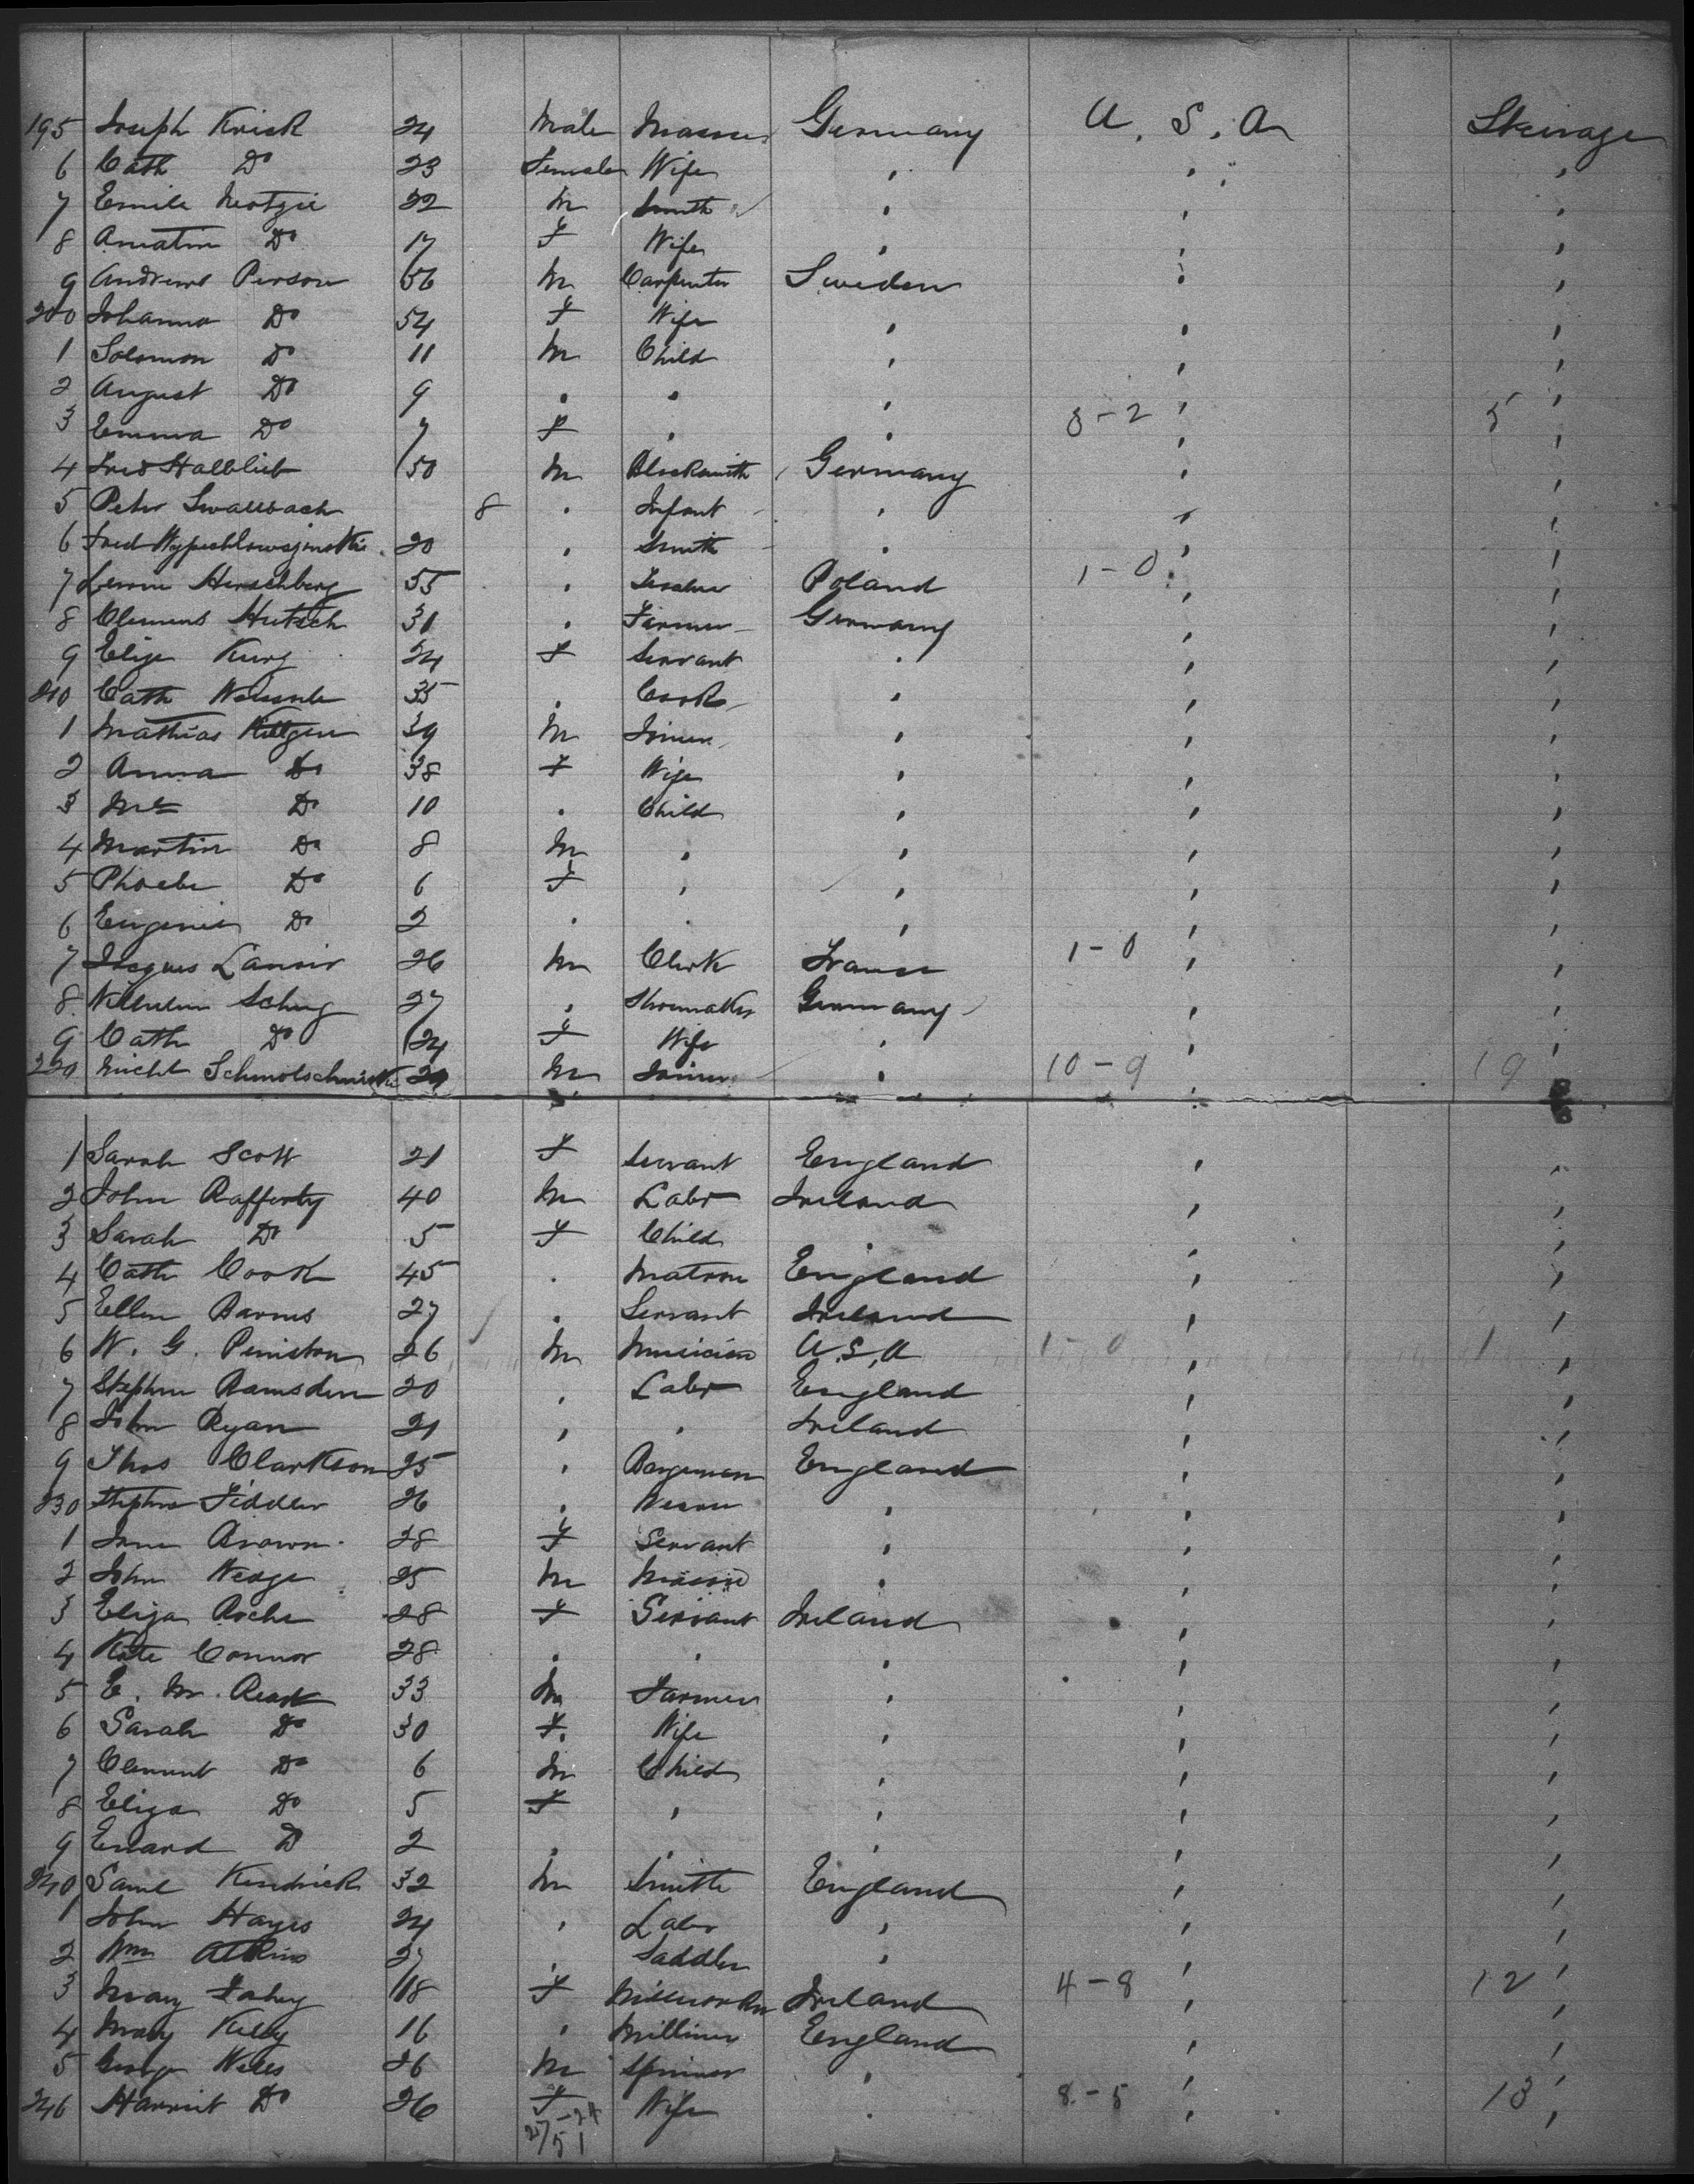 195 Joseph Krisk 24 Male Mason Germany U. S. A Steerage
6 Cath Do 23 Female Wife " " "
7 Emile 22 M Smith " " "
8 Do 17 F Wife " " "
9 Andrews Person 56 M Carpenter Sweden " "
200 Johanna Do 54 F Wife " " "
1 Solomon Do 11 M Child " " "
2 August Do 9 " " " " "
3 Emma Do 7 F " " 3-2 " 5 "
4 Fred Halblieb 50 M Blacksmith Germany " "
5 Peter Swallbach 8 " Infant " " "
6 Fred 20 " Smith " " "
7 Herschberg 55 " Poland 1-0 " "
8 Clemens Hutsch 31 " Farmer Germany " "
9 Elize Kurz 24 F Servant " " "
210 Cath 35 " Cook " " "
1 Mathias Kittgen 39 M Joiner " " "
2 Anna Do 38 F Wife " " "
3 Do 10 " Child " " "
4 Martin Do 8 M " " " "
5 Phoebe Do 6 F " " " "
6 Eugenie Do 2 " " " " "
7 Jacques Lanoir 26 M Clerk France 1-0 " "
8 Wilhelm Schug 27 " Shoemaker Germany " "
9 Cath Do 24 F Wife " " "
220 Michl 29 M Joiner " 10-9 " 19 "
1 Sarah Scott 21 F Servant England " "
2 John Rafferty 40 M Labr Ireland " "
3 Sarah Do 5 F Child " " "
4 Cath Cook 45 " Matron England " "
5 Ellen Barnes 27 " Servant Ireland " "
6 W. G. Peniston 26 M Musician U.S.A 1-0 " 1 "
7 Stephen Ramsden 20 " Labr England " "
8 John Ryan 21 " " Ireland " "
9 Thos Clarkson 25 " Bargeman England " "
230 Stephen Fiddler 26 " " " "
1 Jane Brown 28 F Servant " " "
2 John Wedge 25 M Mason " " "
3 Eliza Roche 28 F Servant Ireland " "
4 Kate Connor 28 " " " " "
5 E. M. Read 33 M Farmer " " "
6 Sarah Do 30 F. Wife " " "
7 Clement Do 6 M Child " " "
8 Eliza Do 5 F " " " "
9 Do 2 " " " " "
240 Saml Kendrick 32 M Smith England " "
1 John Hayes 24 " Labr " " "
2 Wm Atkins 27 " Saddler " " "
3 Mary Fahey 18 F Millworker Ireland 4-8 " 12 "
4 Mary Kelly 16 " Milliner England " "
5 George Wells 26 M Spinner " " "
246 Harriet Do 26 F Wife " 8-5 " 13 "
27-24
51